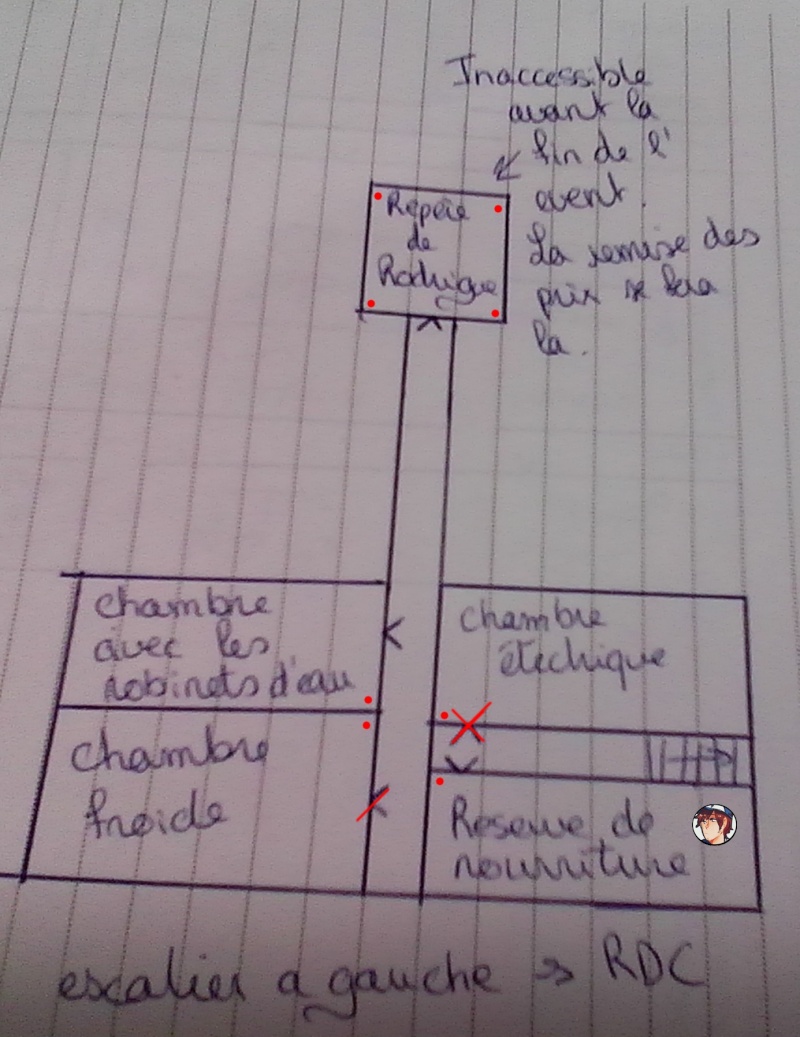 Inaccessible
avant la
fin de l'
event.
La remise des
prix se fera
la.
Repère
de
Rodrigue
chambre
avec les
robinets d'eau
chambre
électrique
chambre
froide
Reserve de
nourriture
escalier a gauche => RDC